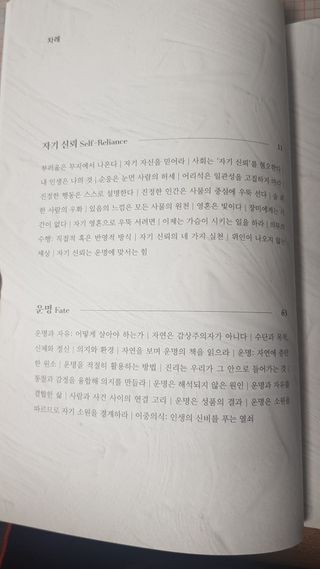 차례
자기 신뢰 Self-Reliance 11
부러움은 무지에서 나온다 | 자기 자신을 믿어라 | 사회는 '자기 신뢰'를 혐오한다
내 인생은 나의 것 | 순응은 눈먼 사람의 허세 | 어리석은 일관성을 고집하지 마라
진정한 행동은 스스로 설명한다 | 진정한 인간은 사물의 중심에 우뚝 선다 | 술 취
한 사람의 우화 | 있음의 느낌은 모든 사물의 원천 | 영혼은 빛이다 | 장미에게는 시
간이 없다 | 자기 영혼으로 우뚝 서려면 | 이제는 가슴이 시키는 일을 하라 |
수행: 직접적 혹은 반영적 방식 | 자기 신뢰의 네 가지 실천 | 위인이 나오지 않는
세상 | 자기 신뢰는 운명에 맞서는 힘
운명 Fate 63
운명과 자유: 어떻게 살아야 하는가 | 자연은 감상주의자가 아니다 | 수단과 목적,
신체와 정신 | 의지와 환경 | 자연을 보며 운명의 책을 읽으라 | 운명: 자연에 충만
한 원소 | 운명을 적절히 활용하는 방법 | 진리는 우리가 그 안으로 들어가는 것 |
통찰과 감정을 융합해 의지를 만들라 | 운명은 해석되지 않은 원인 | 운명과 자유를
결합한 삶 | 사람과 사건 사이의 연결 고리 | 운명은 성품의 결과 | 운명은 소원을
따르므로 자기 소원을 경계하라 | 이중의식: 인생의 신비를 푸는 열쇠